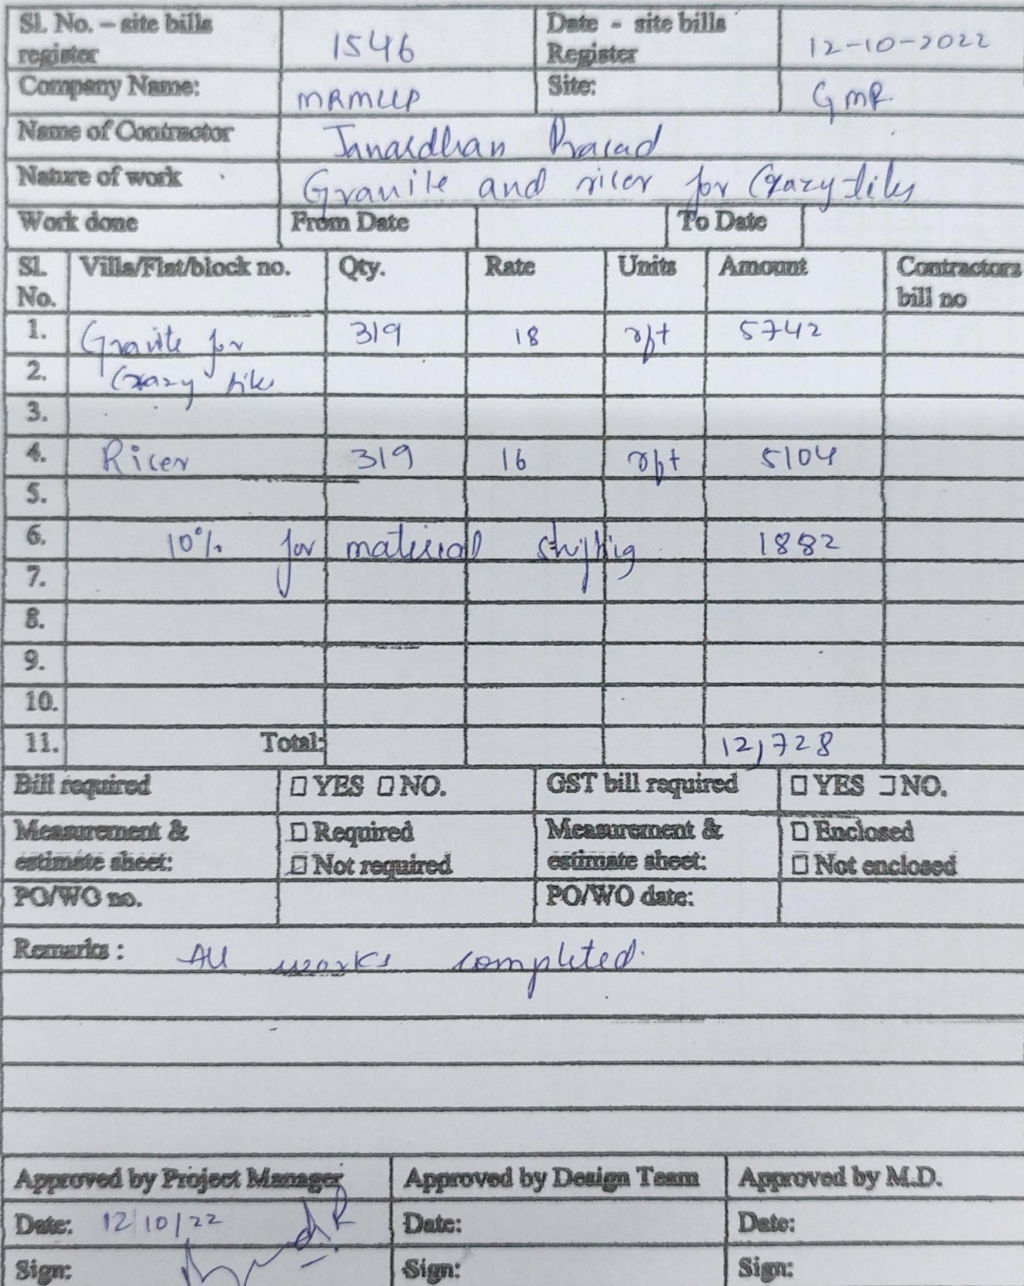 Sl. No. – site bills register 1546 Date - site bills Register 12-10-2022
Company Name: MRMLLP Site: GMR
Name of Contractor Janardhan Prasad
Nature of work Granite and ricer for Crazy tiles
Work done From Date To Date
Sl. No. Villa/Flat/block no. Qty. Rate Units Amount Contractors bill no
1. Granite for 319 18 rft 5742
2. Crazy tile
3.
4. Ricer 319 16 rft 5104
5.
6. 10% for material shifting 1882
7.
8.
9.
10.
11. Total: 12,728
Bill required ☐ YES ☐ NO. GST bill required ☐ YES ☐ NO.
Measurement & estimate sheet: ☐ Required ☐ Not required Measurement & estimate sheet: ☐ Enclosed ☐ Not enclosed
PO/WO no. PO/WO date:
Remarks : All works completed.
Approved by Project Manager Approved by Design Team Approved by M.D.
Date: 12/10/22 Date: Date:
Sign: Sign: Sign: